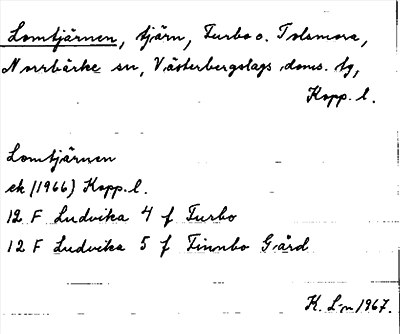 Lomtjärnen, tjärn, Turbo o. Tolsmora,
Norrbärke sn, Västerbergslags doms. tg,
Kopp. l.
Lomtjärnen
ek (1966) Kopp. l.
12 F Ludvika 4 f Turbo
12 F Ludvika 5 f Finnbo Gård
K. L-n 1967.